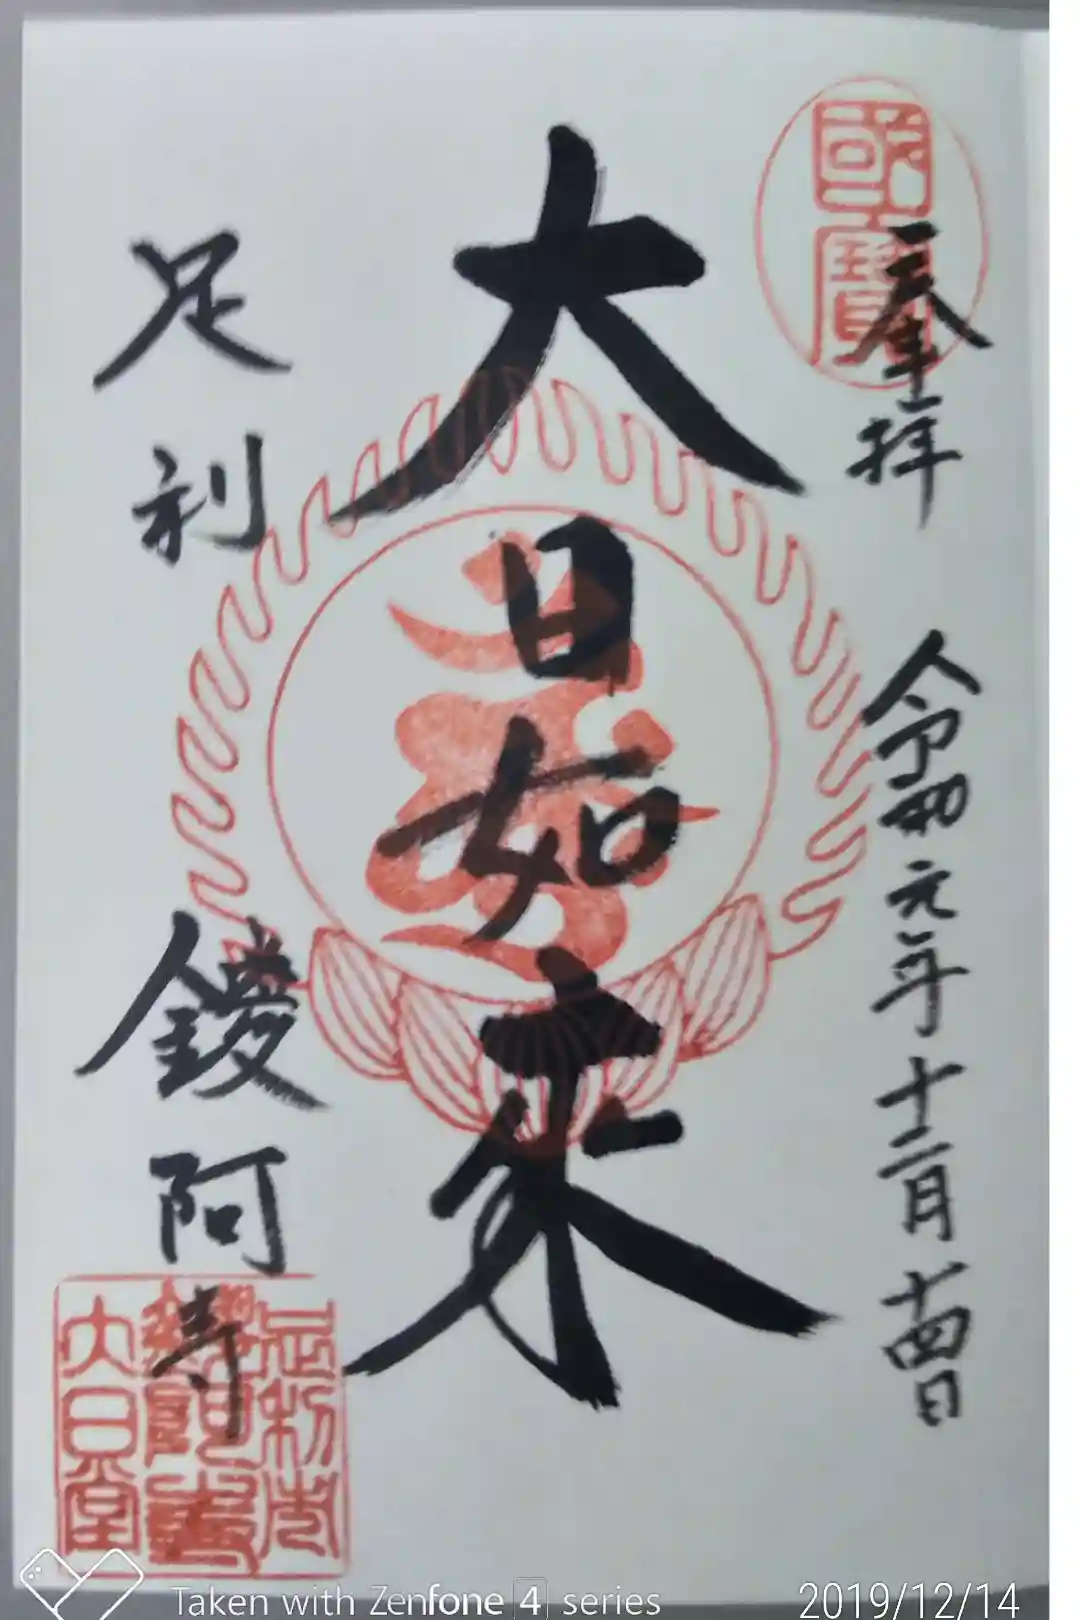 國寶
奉拝
令和元年十二月十四日
大日如来
足利 鑁阿寺
足利市
鑁阿寺
大日堂
Taken with Zenfone 4 series
2019/12/14